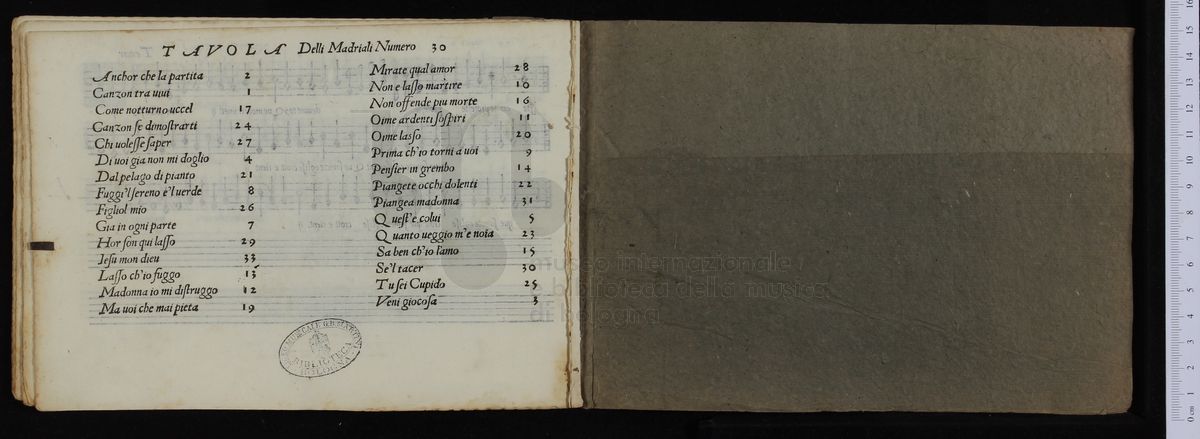 TAVOLA Delli Madriali Numero 30
Anchor che la partita 2
Canzon tra uiui 1
Come notturno uccel 17
Canzon se dimostrarti 24
Chi uolesse saper 27
Di uoi gia non mi doglio 4
Dal pelago di pianto 21
Fuggi'l sereno e'l uerde 8
Figliol mio 26
Gia in ogni parte 7
Hor son qui lasso 29
Jesu mon dieu 33
Lasso ch'io fuggo 13
Madonna io mi distruggo 12
Ma uoi che mai pieta 19
Mirate qual amor 28
Non e lasso martire 10
Non offende piu morte 16
Oime ardenti sospiri 11
Oime lasso 20
Prima ch'io torni a uoi 9
Pensier in grembo 14
Piangete occhi dolenti 22
Piangea madonna 31
Quest'e colui 5
Quanto ueggio m'e noia 23
Sa ben ch'io l'amo 15
Se'l tacer 30
Tu sei Cupido 25
Veni giocosa 3
museo internazionale
biblioteca della musica
bologna
BIBLIOTECA
BOLOGNA
0 cm 1 2 3 4 5 6 7 8 9 10 11 12 13 14 15 16